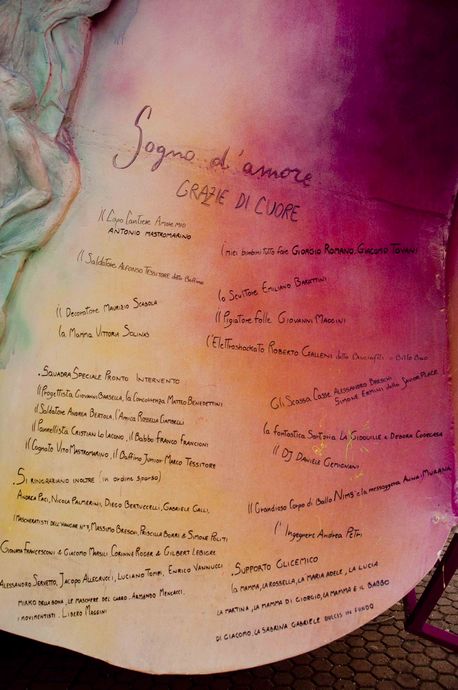 Sogno d'amore
GRAZIE DI CUORE
Il Capo Cantiere
ANTONIO MASTROMARINO
I miei bambini tutto fare GIORGIO ROMANO, GIACOMO TOVANI
Il SALDATORE ALFONSO TESSITORE detto Baffino
lo SCULTORE EMILIANO BARETTINI
Il DECORATORE MAURIZIO SCABOLA
Il PIGIATORE FOLLE GIOVANNI MAGGINI
la MAMMA VITTORIA SOLINAS
l'ELETTROSHOCKATO ROBERTO CEALLENI detto
.SQUADRA SPECIALE PRONTO INTERVENTO
Il PROGETTISTA GIOVANNI BARSELLA, la CONCORRENZA MATTEO BENEDETTINI
Il SALDATORE ANDREA BERTOLA, l'AMICA ROSSELLA CIAMBELLI
Il PANNELLISTA CRISTIAN LO IACONO, il BABBO FRANCO FRANCIONI
Il COGNATO VITO MASTROMARINO, il BAFFINO JUNIOR MARCO TESSITORE
Gli SCASSA CASSE ALESSANDRO BRESCHI
SIMONE ERMINI della SAVOIR PLACE
la fantastica SARTORIA LA GIDOUILLE e DEBORA CODECASA
Il DJ DANIELE GEMIGNANI
.SI RINGRAZIANO INOLTRE (in ordine sparso)
ANDREA PACI, NICOLA PALMERINI, DIEGO BERTUCCELLI, GABRIELE GALLI,
I MASCHERATISTI DELL'HANGAR N°7, MASSIMO BRESCHI, PRISCILLA BORRI & SIMONE POLITI
GIONATA FRANCESCONI & GIACOMO MARSILI, CORINNE ROGER & GILBERT LEBIGRE
ALESSANDRO SERVETTO, JACOPO ALLEGRUCCI, LUCIANO TOMEI, ENRICO VANNUCCI
MIRKO DELLA BONA, LE MASCHERE DEL CARRO, ARMANDO MENCACCI,
I MOVIMENTISTI, LIBERO MAGGINI
Il GRANDIOSO CORPO DI BALLO NIMS e la messaggera ANNA MURANA
l'INGEGNERE ANDREA PETRI
.SUPPORTO GLICEMICO
LA MAMMA, LA ROSSELLA, LA MARIA ADELE, LA LUCIA
LA MARTINA, LA MAMMA DI GIORGIO, LA MAMMA E IL BABBO
DI GIACOMO, LA SABRINA GABRIELE DULCIS IN FUNDO